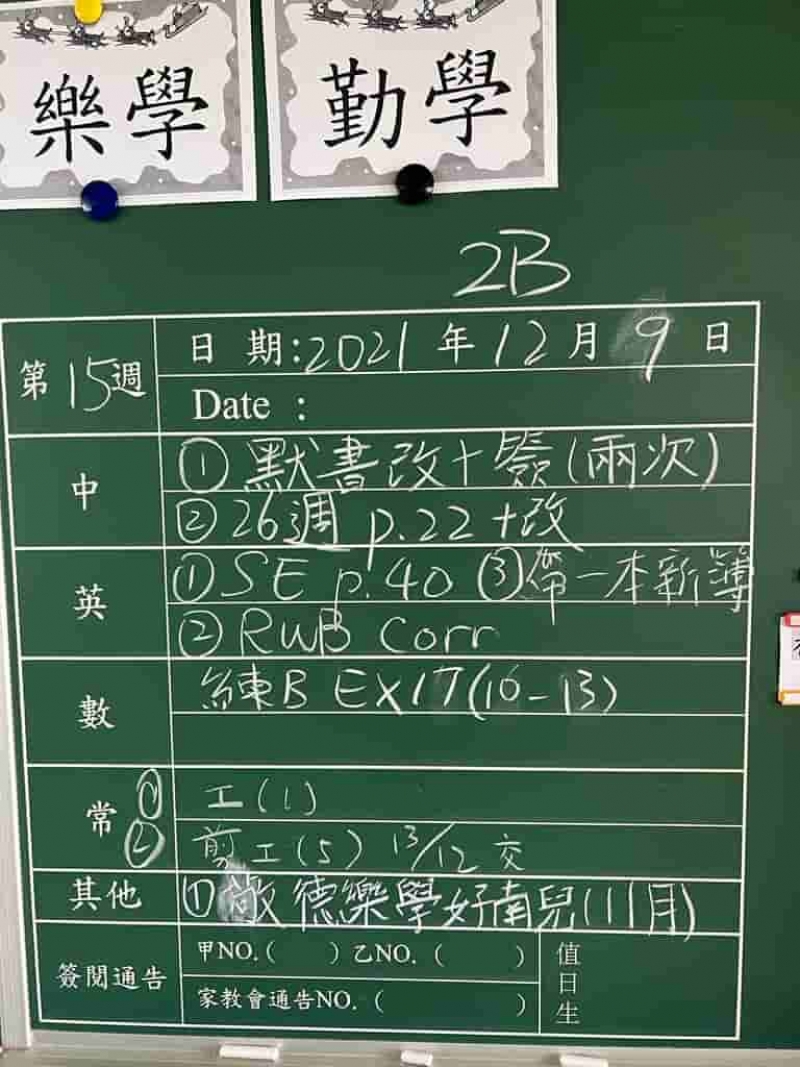 樂學
勤學
2B
第15週
日期:2021年12月9日
Date :
中
①默書改+簽(兩次)
②26週 p.22 +改
英
①SE p.40 ③帶一本新簿
②RWB Corr
數
練B EX17(10-13)
常
① 工(1)
② 剪工(5) 13/12 交
其他
①敬德樂學好南兒(11月)
簽閱通告
甲NO.( ) 乙NO.( )
家教會通告NO.( )
值日生